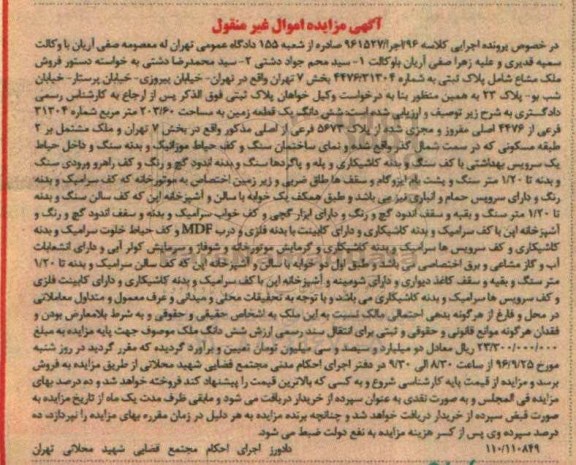 آگهی مزایده اموال غیر منقول
در خصوص پرونده اجرایی کلاسه ۲۹۶/اجرا/۹۶۱۵۲۷ صادره از شعبه ۱۵۵ دادگاه عمومی تهران له معصومه صفی آریان با وکالت
سمیه قدیری و علیه زهرا صفی آریان باوکالت ۱- سید محم جواد دشتی ۲- سید محمدرضا دشتی به خواسته دستور فروش
ملک مشاع شامل پلاک ثبتی به شماره ۴۴۷۶/۳۱۳۰۴ بخش ۷ تهران واقع در تهران- خیابان پیروزی- خیابان پرستار- خیابان
شب بو- پلاک ۲۳ به همین منظور بنا به درخواست وکیل خواهان پلاک ثبتی فوق الذکر پس از ارجاع به کارشناس رسمی
دادگستری به شرح زیر توصیف و ارزیابی شده است شش دانگ یک قطعه زمین به مساحت ۲۰۳/۶۰ متر مربع شماره ۳۱۳۰۴
فرعی از ۴۴۷۶ اصلی مفروز و مجزی شده از پلاک ۵۶۷۳ فرعی از اصلی مذکور واقع در بخش ۷ تهران و ملک مشتمل بر ۲
طبقه مسکونی که در سمت شمال گذر واقع شده و نمای ساختمان سنگ و کف حیاط موزائیک و بدنه سنگ و داخل حیاط
یک سرویس بهداشتی با کف سنگ و بدنه کاشیکاری و پله و پاگردها سنگ و بدنه اندود گچ و رنگ و کف راهرو ورودی سنگ
و بدنه تا ۱/۲۰ متر سنگ و پشت بام ایزوگام و سقف ها طاق ضربی و زیر زمین اختصاص به موتورخانه که کف سرامیک و بدنه
رنگ و دارای سرویس حمام و انباری نیز می باشد و طبق همکف یک خوابه با سالن و آشپزخانه اپن که کف سالن سنگ و بدنه
تا ۱/۲۰ متر سنگ و بقیه و سقف اندود گچ و رنگ و دارای ابزار گچی و کف خواب سرامیک و بدنه و سقف اندود گچ و رنگ و
آشپزخانه اپن با کف سرامیک و بدنه کاشیکاری و دارای کابینت با بدنه فلزی و درب MDF و کف حیاط خلوت سرامیک و بدنه
کاشیکاری و کف سرویس ها سرامیک و بدنه کاشیکاری و گرمایش موتورخانه و شوفاژ و سرمایش کولر آبی و دارای انشعابات
آب و گاز مشاعی و برق اختصاصی می باشد و طبق اول دو خوابه با سالن و آشپزخانه اپن که کف سالن سرامیک و بدنه تا ۱/۲۰
متر سنگ و بقیه و سقف کاغذ دیواری و دارای شومینه و آشپزخانه اپن با کف سرامیک و بدنه کاشیکاری و دارای کابینت فلزی
و کف سرویس ها سرامیک و بدنه کاشیکاری می باشد و با توجه به تحقیقات محلی و میدانی و عرف معمول و متداول معاملاتی
در محل و فارغ از هرگونه بدهی احتمالی مالک نسبت به این ملک به اشخاص حقیقی و حقوقی و به شرط بلامعارض بودن و
فقدان هرگونه موانع قانونی و حقوقی و ثبتی برای انتقال سند رسمی ارزش شش دانگ ملک موصوف جهت پایه مزایده به مبلغ
۲۳/۳۰۰/۰۰۰/۰۰۰ ریال معادل دو میلیارد و سیصد و سی میلیون تومان تعیین و برآورد گردیده که مقرر گردید در روز شنبه
مورخ ۹۶/۹/۲۵ از ساعت ۸/۳۰ الی ۹/۳۰ در دفتر اجرای احکام مدنی مجتمع قضایی شهید محلاتی از طریق مزایده به فروش
برسد و مزایده از قیمت پایه کارشناسی شروع و به کسی که بالاترین قیمت را پیشنهاد کند فروخته خواهد شد و ده درصد بهای
مزایده فی المجلس و به صورت نقدی به عنوان سپرده از خریدار دریافت می شود و مابقی ظرف مدت یک ماه از تاریخ مزایده به
صورت قبض سپرده از خریدار دریافت خواهد شد و چنانچه برنده مزایده به هر دلیل در زمان مقرره بهای مزایده را نپردازد، ده
درصد سپرده وی پس از کسر هزینه مزایده به نفع دولت ضبط می شود.
۱۱۰/۱۱۰۸۴۹ دادورز اجرای احکام مجتمع قضایی شهید محلاتی تهران